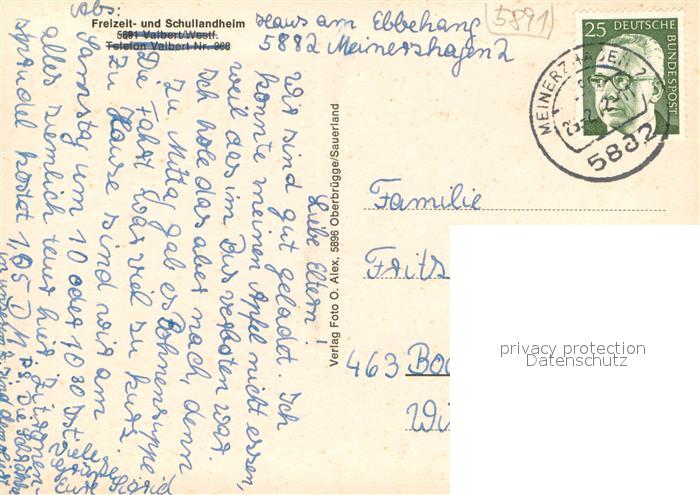 Abs:
Freizeit- und Schullandheim
5891 Valbert/Westf.
Telefon Valbert Nr. 368
Haus am Ebbehang
5882 Meinerzhagen 2
(5891)
25 DEUTSCHE BUNDESPOST
MEINERZHAGEN 2
5882
Liebe Eltern!
Wir sind gut gelandet. Ich
konnte meinen Apfel nicht essen,
weil das im Bus verboten war.
Ich hole das aber nach, denn
zu Mittag gab es Bohnensuppe
Die Fahrt war viel zu kurz
zu Hause sind wir am
Samstag um 10 oder 10 30 Ist
alles ziemlich teuer hier. Zitronen-
sprudel kostet 1,05 DM
viele
Grüße
Eure Sigrid
Verlag Foto O. Alex, 5896 Oberbrügge/Sauerland
Familie
Fritz
463 Boc
Wi
privacy protection
Datenschutz